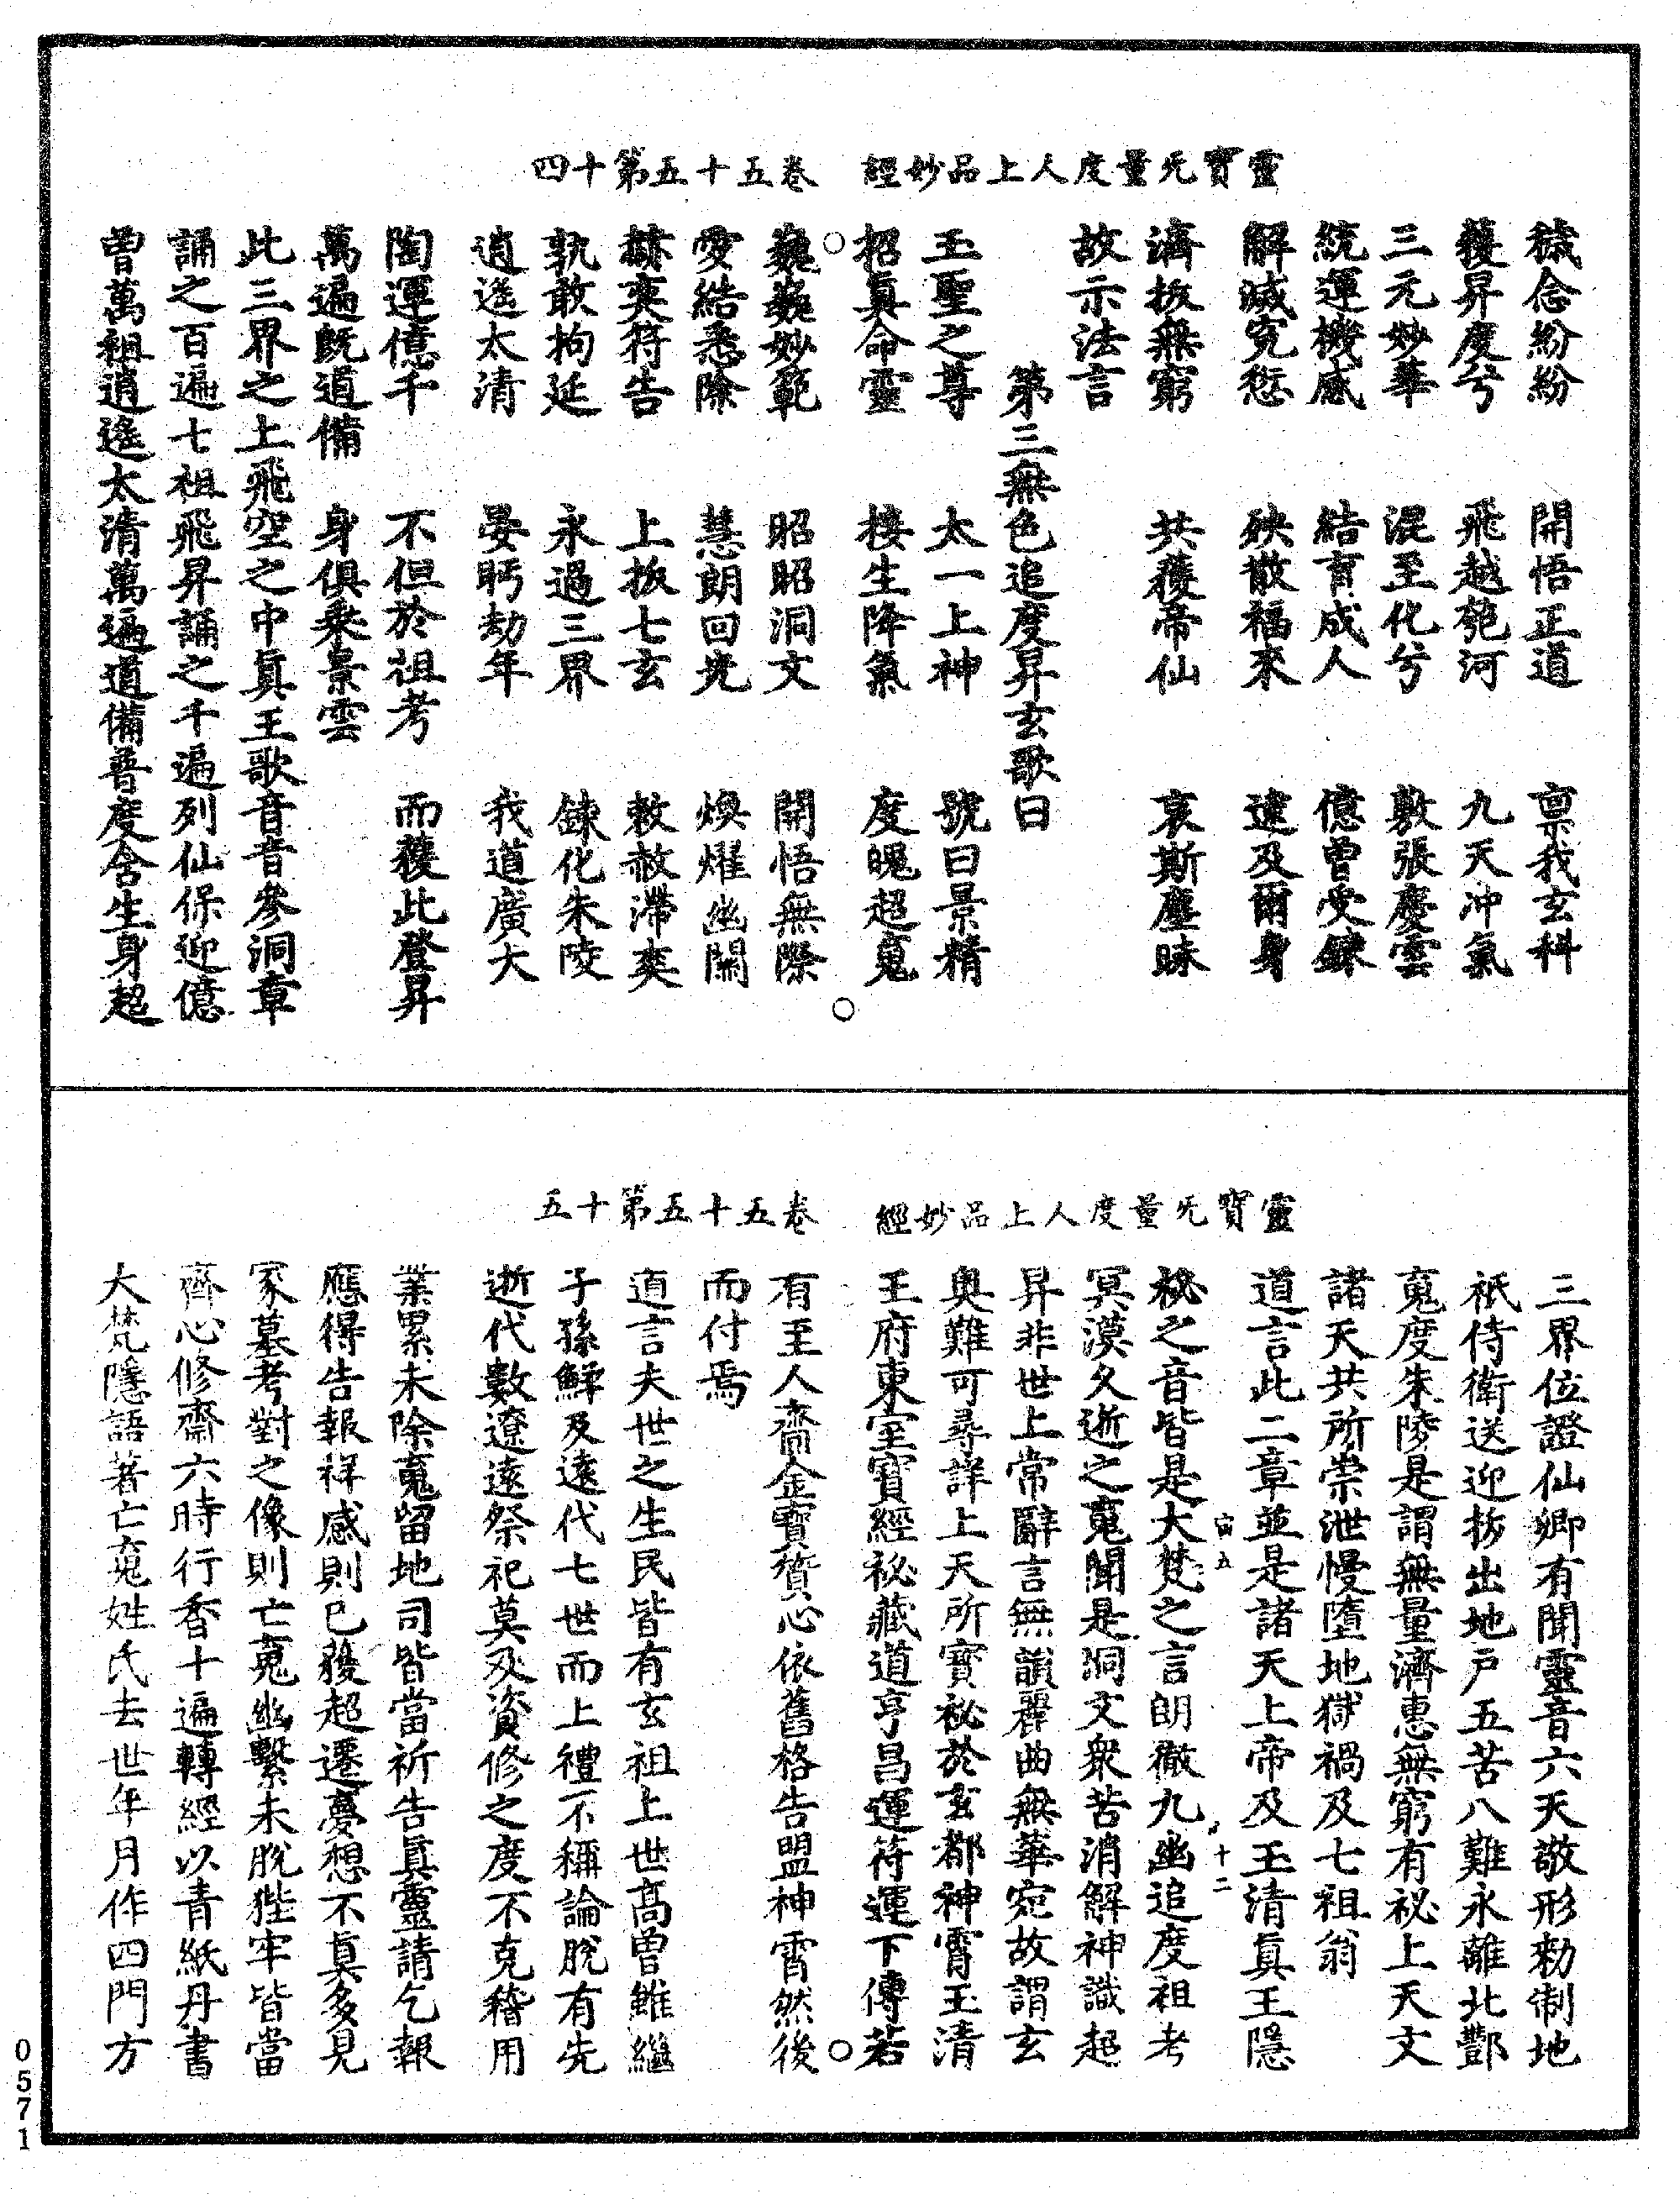 靈寶无量度人上品妙經　卷五十五第十四
穢念紛紛　開悟正道　稟我玄科
獲昇度兮　飛越兮河　九天沖氣
三元妙華　混至化兮　敷張慶雲
統運機感　結育成人　億曾受鍊
解滅寃愆　殃散福來　逮及爾身
濟拔無窮　共獲帝仙　哀斯塵昧
故示法言
第三無色追度昇玄歌曰
玉聖之尊　太一上神　號曰景精
招真命靈　接生降氣　度魄超䰟
巍巍妙範　昭昭洞文　開悟無際
愛結悉除　慧朗回光　煥燿幽關
赫奕符告　上拔七玄　敕赦滯爽
孰敢拘延　永過三界　鍊化朱陵
逍遙太清　晏眄劫年　我道廣大
陶運億千　不但於祖考　而獲此登昇
萬遍既道備　身俱乘景雲
此三界之上飛空之中真王歌音音參洞章
誦之百遍七祖飛昇誦之千遍列仙保迎億
曾萬祖逍遙太清萬遍道備普度含生身超
靈寶无量度人上品妙經　卷五十五第十五
三界位證仙卿有聞靈音六天敬形勑制地
祇侍衛送迎拔出地戶五苦八難永離北酆
䰟度朱陵是謂無量濟惠無窮有祕上天文
諸天共所崇泄慢墮地獄禍及七祖翁
道言此二章並是諸天上帝及玉清真王隱
宙五　十二
祕之音皆是大梵之言朗徹九幽追度祖考
冥漠久逝之䰟聞是洞文衆苦消解神識超
昇非世上常辭言無韻麗曲無華宛故謂玄
奧難可尋詳上天所寶祕於玄都神霄玉清
王府東室寶經祕藏道亨昌運符運下傳若
有至人齎金寶質心依舊格告盟神霄然後
而付焉
道言夫世之生民皆有玄祖上世高曾雖繼
子孫鮮及遠代七世而上禮不稱論脫有先
逝代數遼遠祭祀莫及資修之度不克稽用
業累未除䰟留地司皆當祈告真靈請乞報
應得告報祥感則已獲超遷夢想不真多見
冢墓考對之像則亡䰟幽繫未脫狴牢皆當
齊心修齋六時行香十遍轉經以青紙丹書
大梵隱語著亡䰟姓氏去世年月作四門方
0571